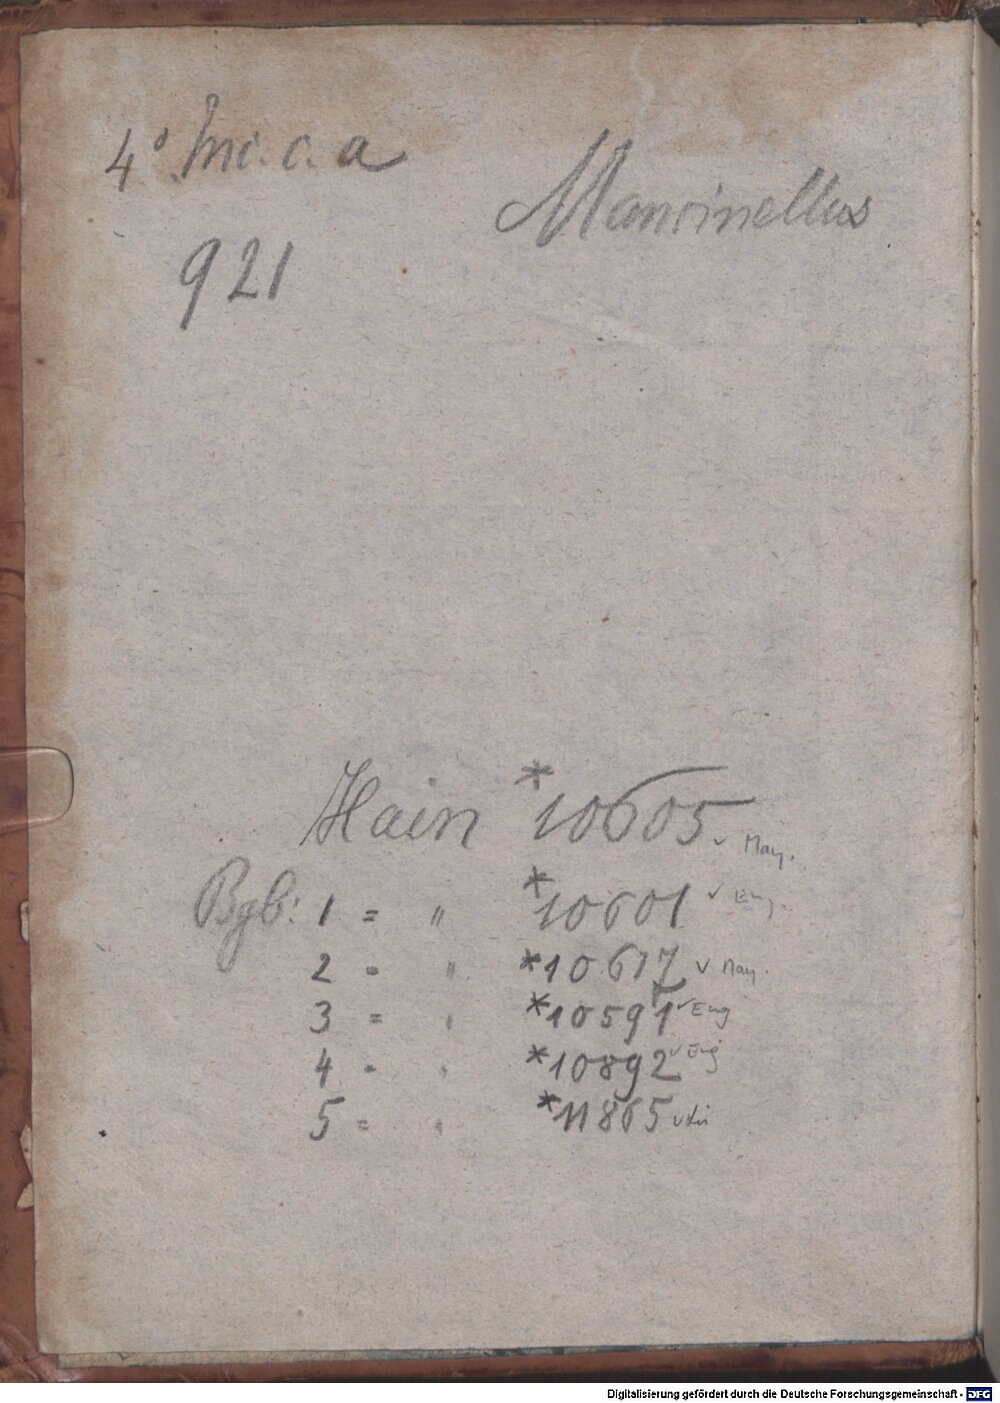 4° Inc. c. a
Mancinellus
921
Hain *10605 v May.
Bgb: 1 = " *10601 v Eng.
2 = " *10617 v May.
3 = " *10591 v Eng
4 = " *10892 v Eng
5 = " *11865 v
Digitalisierung gefördert durch die Deutsche Forschungsgemeinschaft - DFG